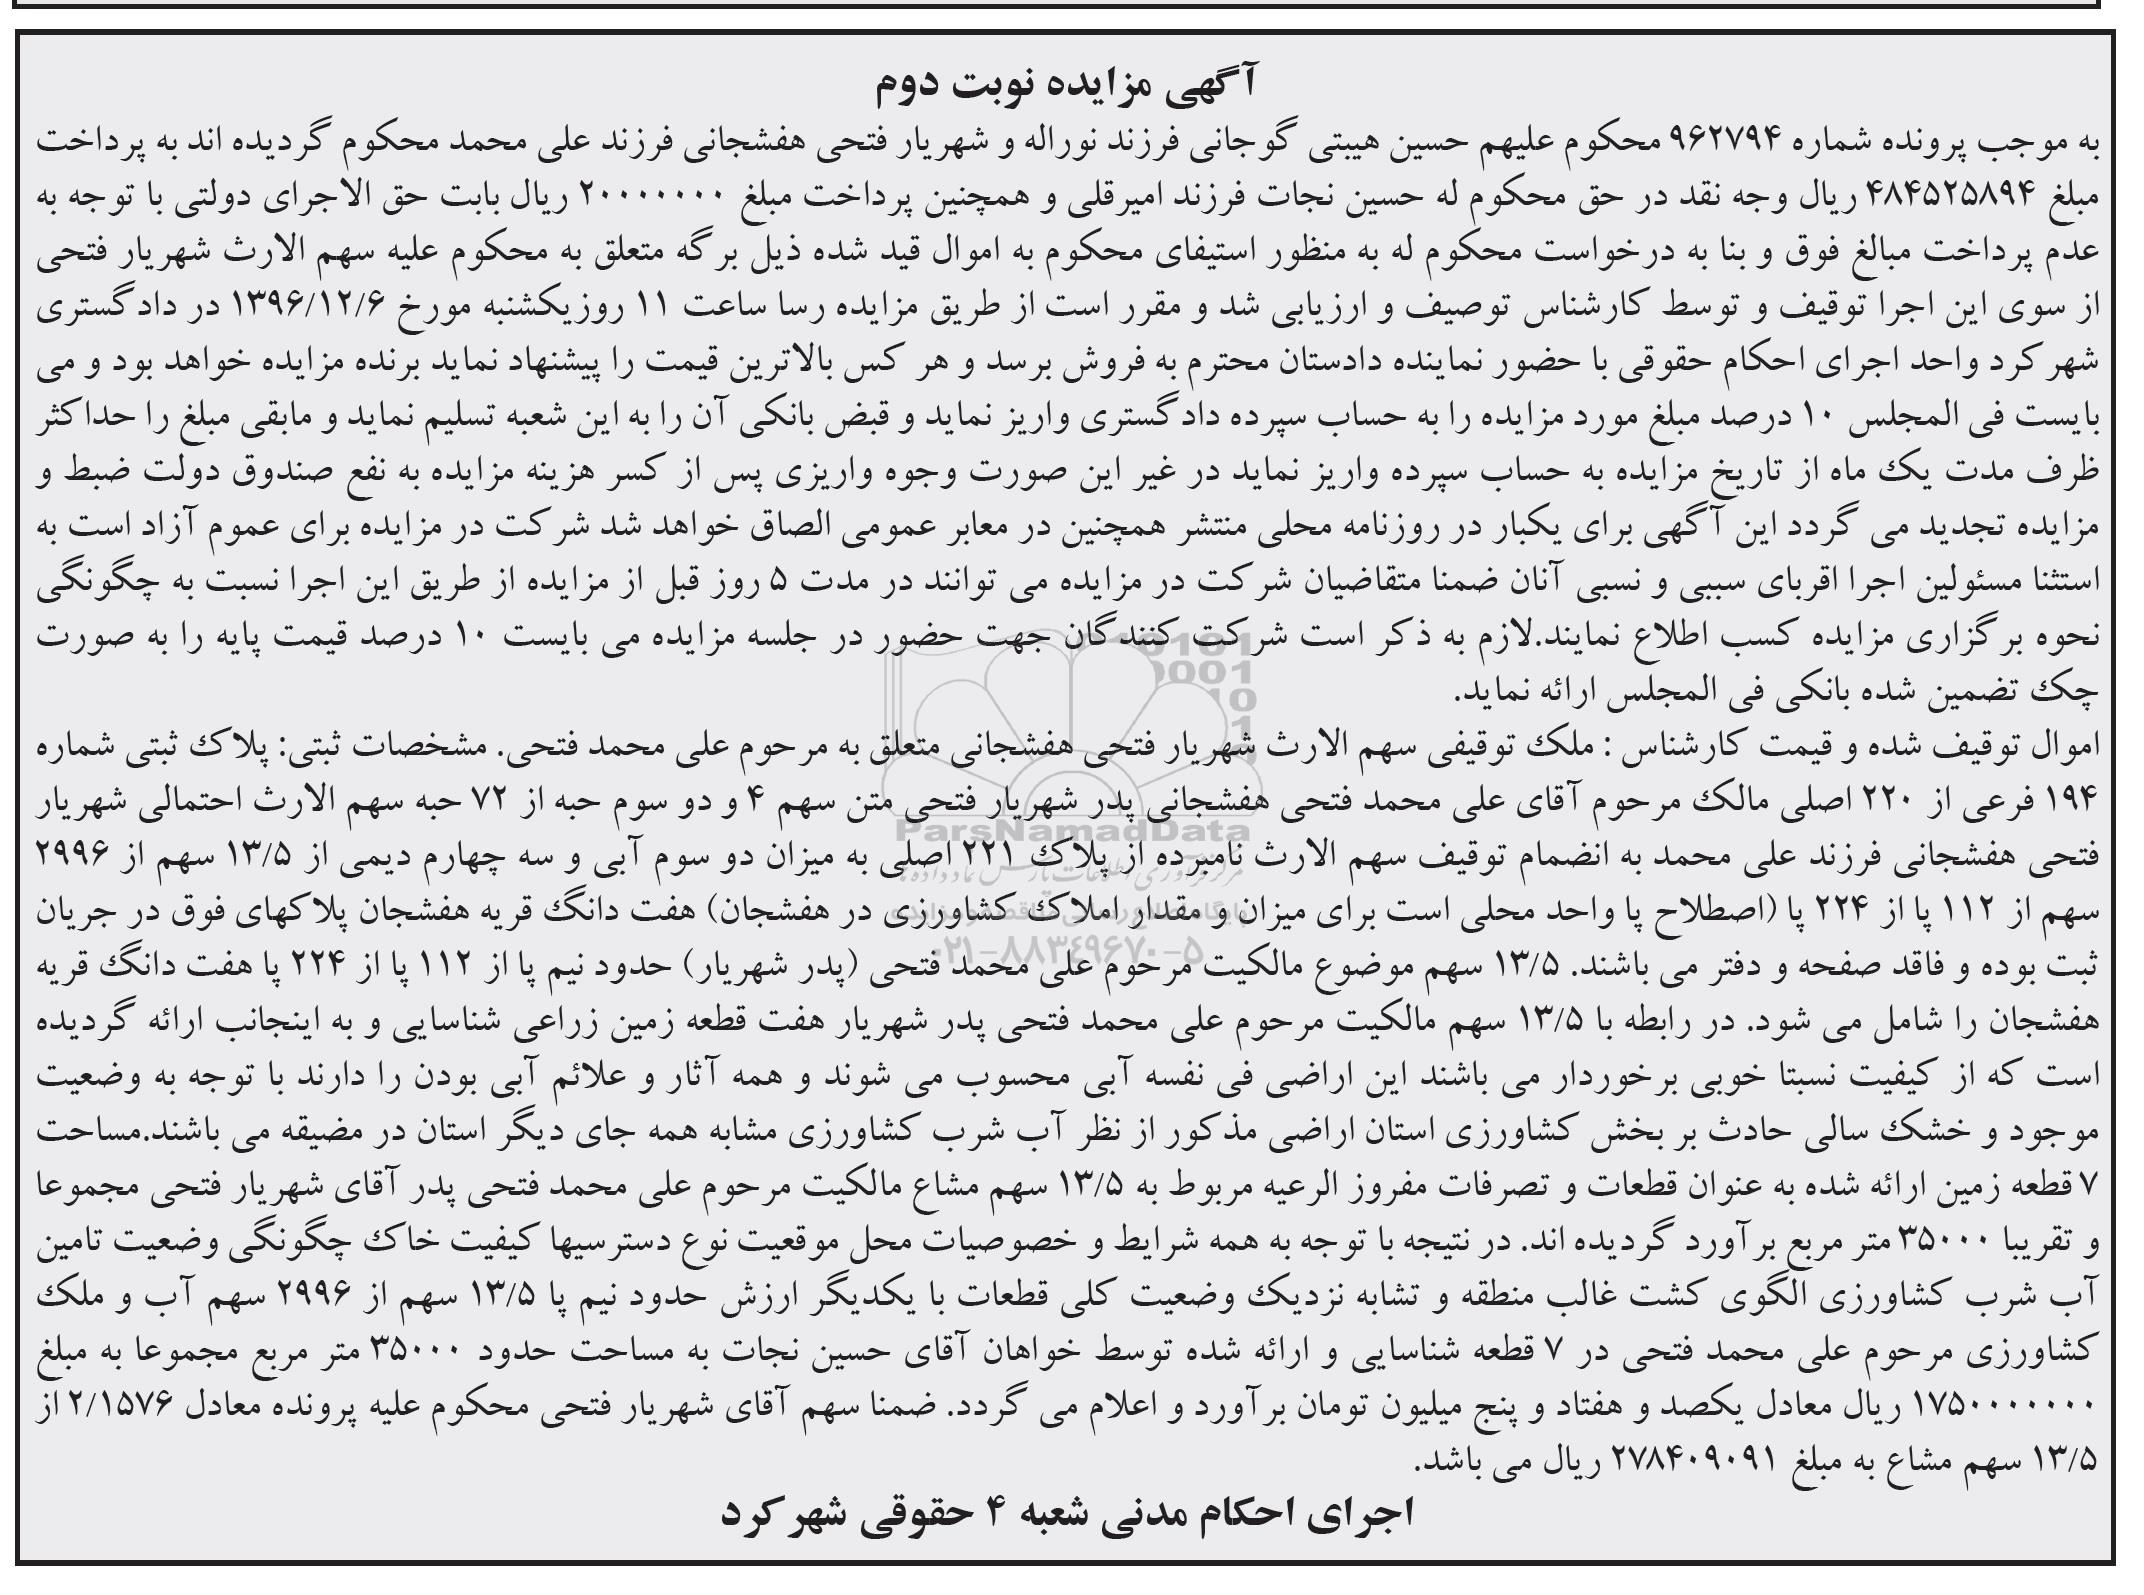 آگهی مزایده نوبت دوم
به موجب پرونده شماره ۹۶۲۷۹۴ محکوم علیهم حسین هیبتی گوجانی فرزند نوراله و شهریار فتحی هفشجانی فرزند علی محمد محکوم گردیده اند به پرداخت
مبلغ ۴۸۴۵۲۵۸۹۴ ریال وجه نقد در حق محکوم له حسین نجات فرزند امیرقلی و همچنین پرداخت مبلغ ۲۰۰۰۰۰۰۰ ریال بابت حق الاجرای دولتی با توجه به
عدم پرداخت مبالغ فوق و بنا به درخواست محکوم له به منظور استیفای محکوم به اموال قید شده ذیل برگه متعلق به محکوم علیه سهم الارث شهریار فتحی
از سوی این اجرا توقیف و توسط کارشناس توصیف و ارزیابی شد و مقرر است از طریق مزایده رسا ساعت ۱۱ روزیکشنبه مورخ ۱۳۹۶/۱۲/۶ در دادگستری
شهرکرد واحد اجرای احکام حقوقی با حضور نماینده دادستان محترم به فروش برسد و هر کس بالاترین قیمت را پیشنهاد نماید برنده مزایده خواهد بود و می
بایست فی المجلس ۱۰ درصد مبلغ مورد مزایده را به حساب سپرده دادگستری واریز نماید و قبض بانکی آن را به این شعبه تسلیم نماید و مابقی مبلغ را حداکثر
ظرف مدت یک ماه از تاریخ مزایده به حساب سپرده واریز نماید در غیر این صورت وجوه واریزی پس از کسر هزینه مزایده به نفع صندوق دولت ضبط و
مزایده تجدید می گردد این آگهی برای یکبار در روزنامه محلی منتشر همچنین در معابر عمومی الصاق خواهد شد شرکت در مزایده برای عموم آزاد است به
استثنا مسئولین اجرا اقربای سببی و نسبی آنان ضمنا متقاضیان شرکت در مزایده می توانند در مدت ۵ روز قبل از مزایده از طریق این اجرا نسبت به چگونگی
نحوه برگزاری مزایده کسب اطلاع نمایند.لازم به ذکر است شرکت کنندگان جهت حضور در جلسه مزایده می بایست ۱۰ درصد قیمت پایه را به صورت
چک تضمین شده بانکی فی المجلس ارائه نماید.
اموال توقیف شده و قیمت کارشناس : ملک توقیفی سهم الارث شهریار فتحی هفشجانی متعلق به مرحوم علی محمد فتحی. مشخصات ثبتی: پلاک ثبتی شماره
۱۹۴ فرعی از ۲۲۰ اصلی مالک مرحوم آقای علی محمد فتحی هفشجانی پدر شهریار فتحی متن سهم ۴ و دو سوم حبه از ۷۲ حبه سهم الارث احتمالی شهریار
فتحی هفشجانی فرزند علی محمد به انضمام توقیف سهم الارث نامبرده از پلاک ۲۲۱ اصلی به میزان دو سوم آبی و سه چهارم دیمی از ۱۳/۵ سهم از ۲۹۹۶
سهم از ۱۱۲ پا از ۲۲۴ پا (اصطلاح پا واحد محلی است برای میزان و مقدار املاک کشاورزی در هفشجان) هفت دانگ قریه هفشجان پلاکهای فوق در جریان
ثبت بوده و فاقد صفحه و دفتر می باشند. ۱۳/۵ سهم موضوع مالکیت مرحوم علی محمد فتحی (پدر شهریار) حدود نیم پا از ۱۱۲ پا از ۲۲۴ پا هفت دانگ قریه
هفشجان را شامل می شود. در رابطه با ۱۳/۵ سهم مالکیت مرحوم علی محمد فتحی پدر شهریار هفت قطعه زمین زراعی شناسایی و به اینجانب ارائه گردیده
است که از کیفیت نسبتا خوبی برخوردار می باشند این اراضی فی نفسه آبی محسوب می شوند و همه آثار و علائم آبی بودن را دارند با توجه به وضعیت
موجود و خشک سالی حادث بر بخش کشاورزی استان اراضی مذکور از نظر آب شرب کشاورزی مشابه همه جای دیگر استان در مضیقه می باشند.مساحت
۷ قطعه زمین ارائه شده به عنوان قطعات و تصرفات مفروز الرعیه مربوط به ۱۳/۵ سهم مشاع مالکیت مرحوم علی محمد فتحی پدر آقای شهریار فتحی مجموعا
و تقریبا ۳۵۰۰۰ متر مربع برآورد گردیده اند. در نتیجه با توجه به همه شرایط و خصوصیات محل موقعیت نوع دسترسیها کیفیت خاک چگونگی وضعیت تامین
آب شرب کشاورزی الگوی کشت غالب منطقه و تشابه نزدیک وضعیت کلی قطعات با یکدیگر ارزش حدود نیم پا ۱۳/۵ سهم از ۲۹۹۶ سهم آب و ملک
کشاورزی مرحوم علی محمد فتحی در ۷ قطعه شناسایی و ارائه شده توسط خواهان آقای حسین نجات به مساحت حدود ۳۵۰۰۰ متر مربع مجموعا به مبلغ
۱۷۵۰۰۰۰۰۰۰ ریال معادل یکصد و هفتاد و پنج میلیون تومان برآورد و اعلام می گردد. ضمنا سهم آقای شهریار فتحی محکوم علیه پرونده معادل ۲/۱۵۷۶ از
۱۳/۵ سهم مشاع به مبلغ ۲۷۸۴۰۹۰۹۱ ریال می باشد.
اجرای احکام مدنی شعبه ۴ حقوقی شهرکرد
ParsNamadData
۰۲۱-۸۸۳۴۹۶۷۰-۵